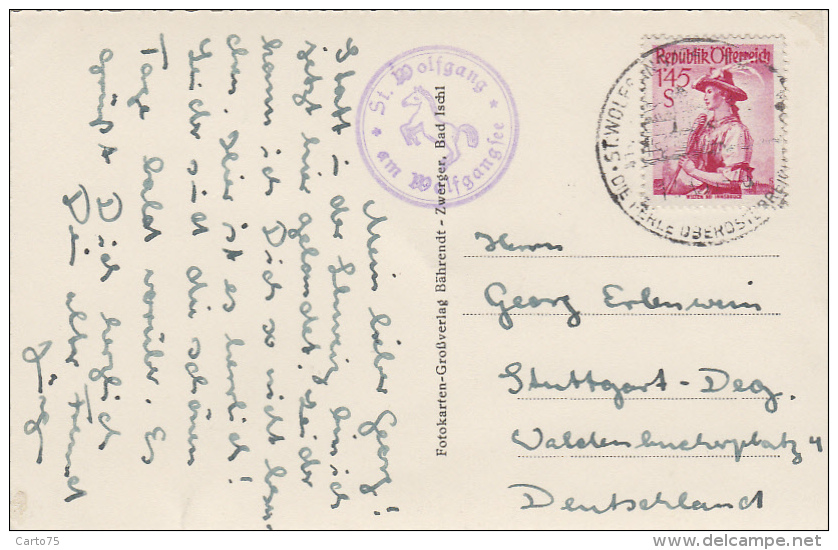 Mein lieber Georg!
Statt in der Schweiz bin ich
jetzt hier gelandet. Leider
kann ich Dich so nicht besu-
chen. Hier ist es herrlich!
Leider sind die schönen
Tage bald vorüber. Es
grüßt Dich herzlich
Dein alter Freund
Jörg
St. Wolfgang
am Wolfgangsee
Fotokarten-Großverlag Bährendt - Zwerger, Bad Ischl
Republik Österreich
1'45
S
ST. WOLFGANG
DIE PERLE OBERÖSTERREI
Herrn
Georg Erlenwein
Stuttgart-Deg.
Waldenbucherplatz 4
Deutschland
Carto75
www.delcampe.net